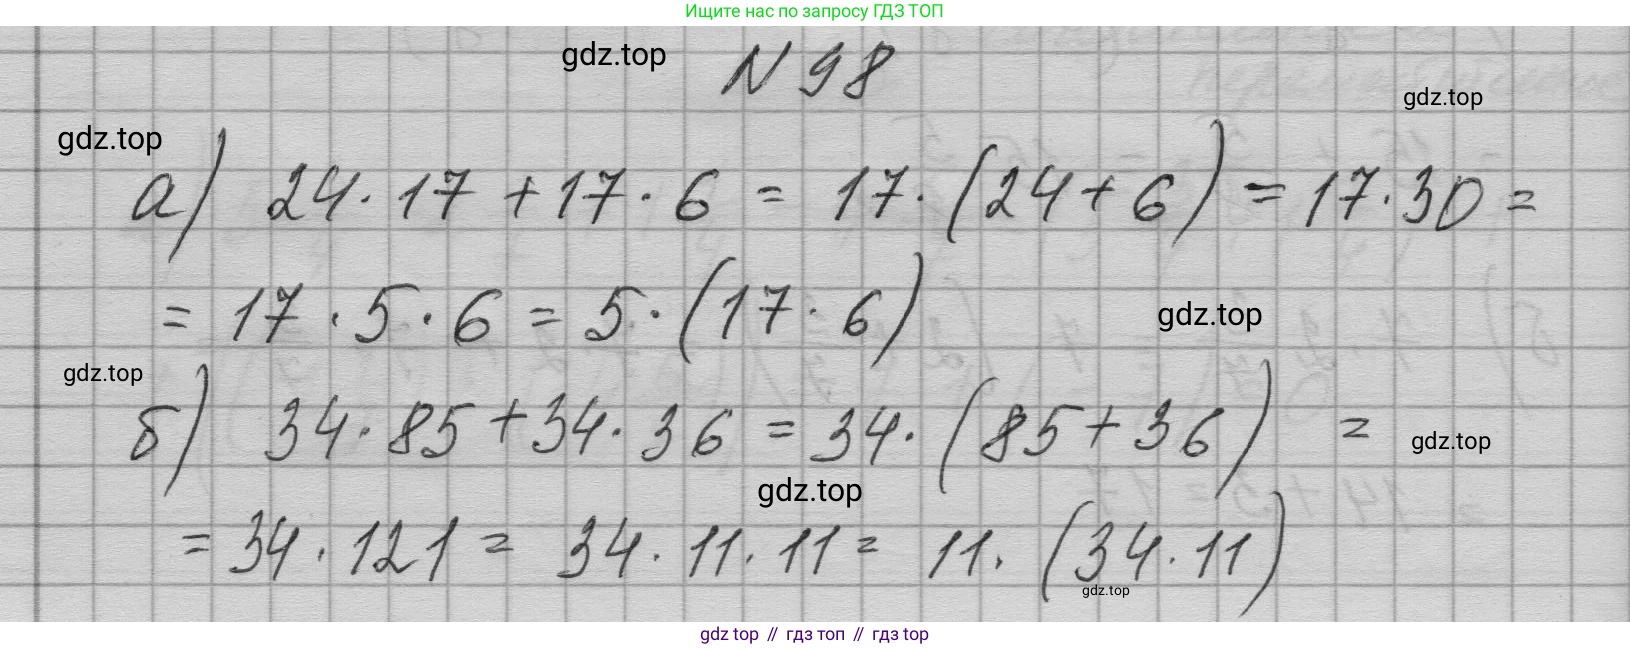 Ищите нас по запросу ГДЗ ТОП
gdz.top
N 98
gdz.top
gdz.top
а) 24 · 17 + 17 · 6 = 17 · (24 + 6) = 17 · 30 =
= 17 · 5 · 6 = 5 · (17 · 6)
gdz.top
gdz.top
б) 34 · 85 + 34 · 36 = 34 · (85 + 36) =
gdz.top
gdz.top
= 34 · 121 = 34 · 11 · 11 = 11 · (34 · 11)
gdz.top
gdz top // гдз топ // гдз top